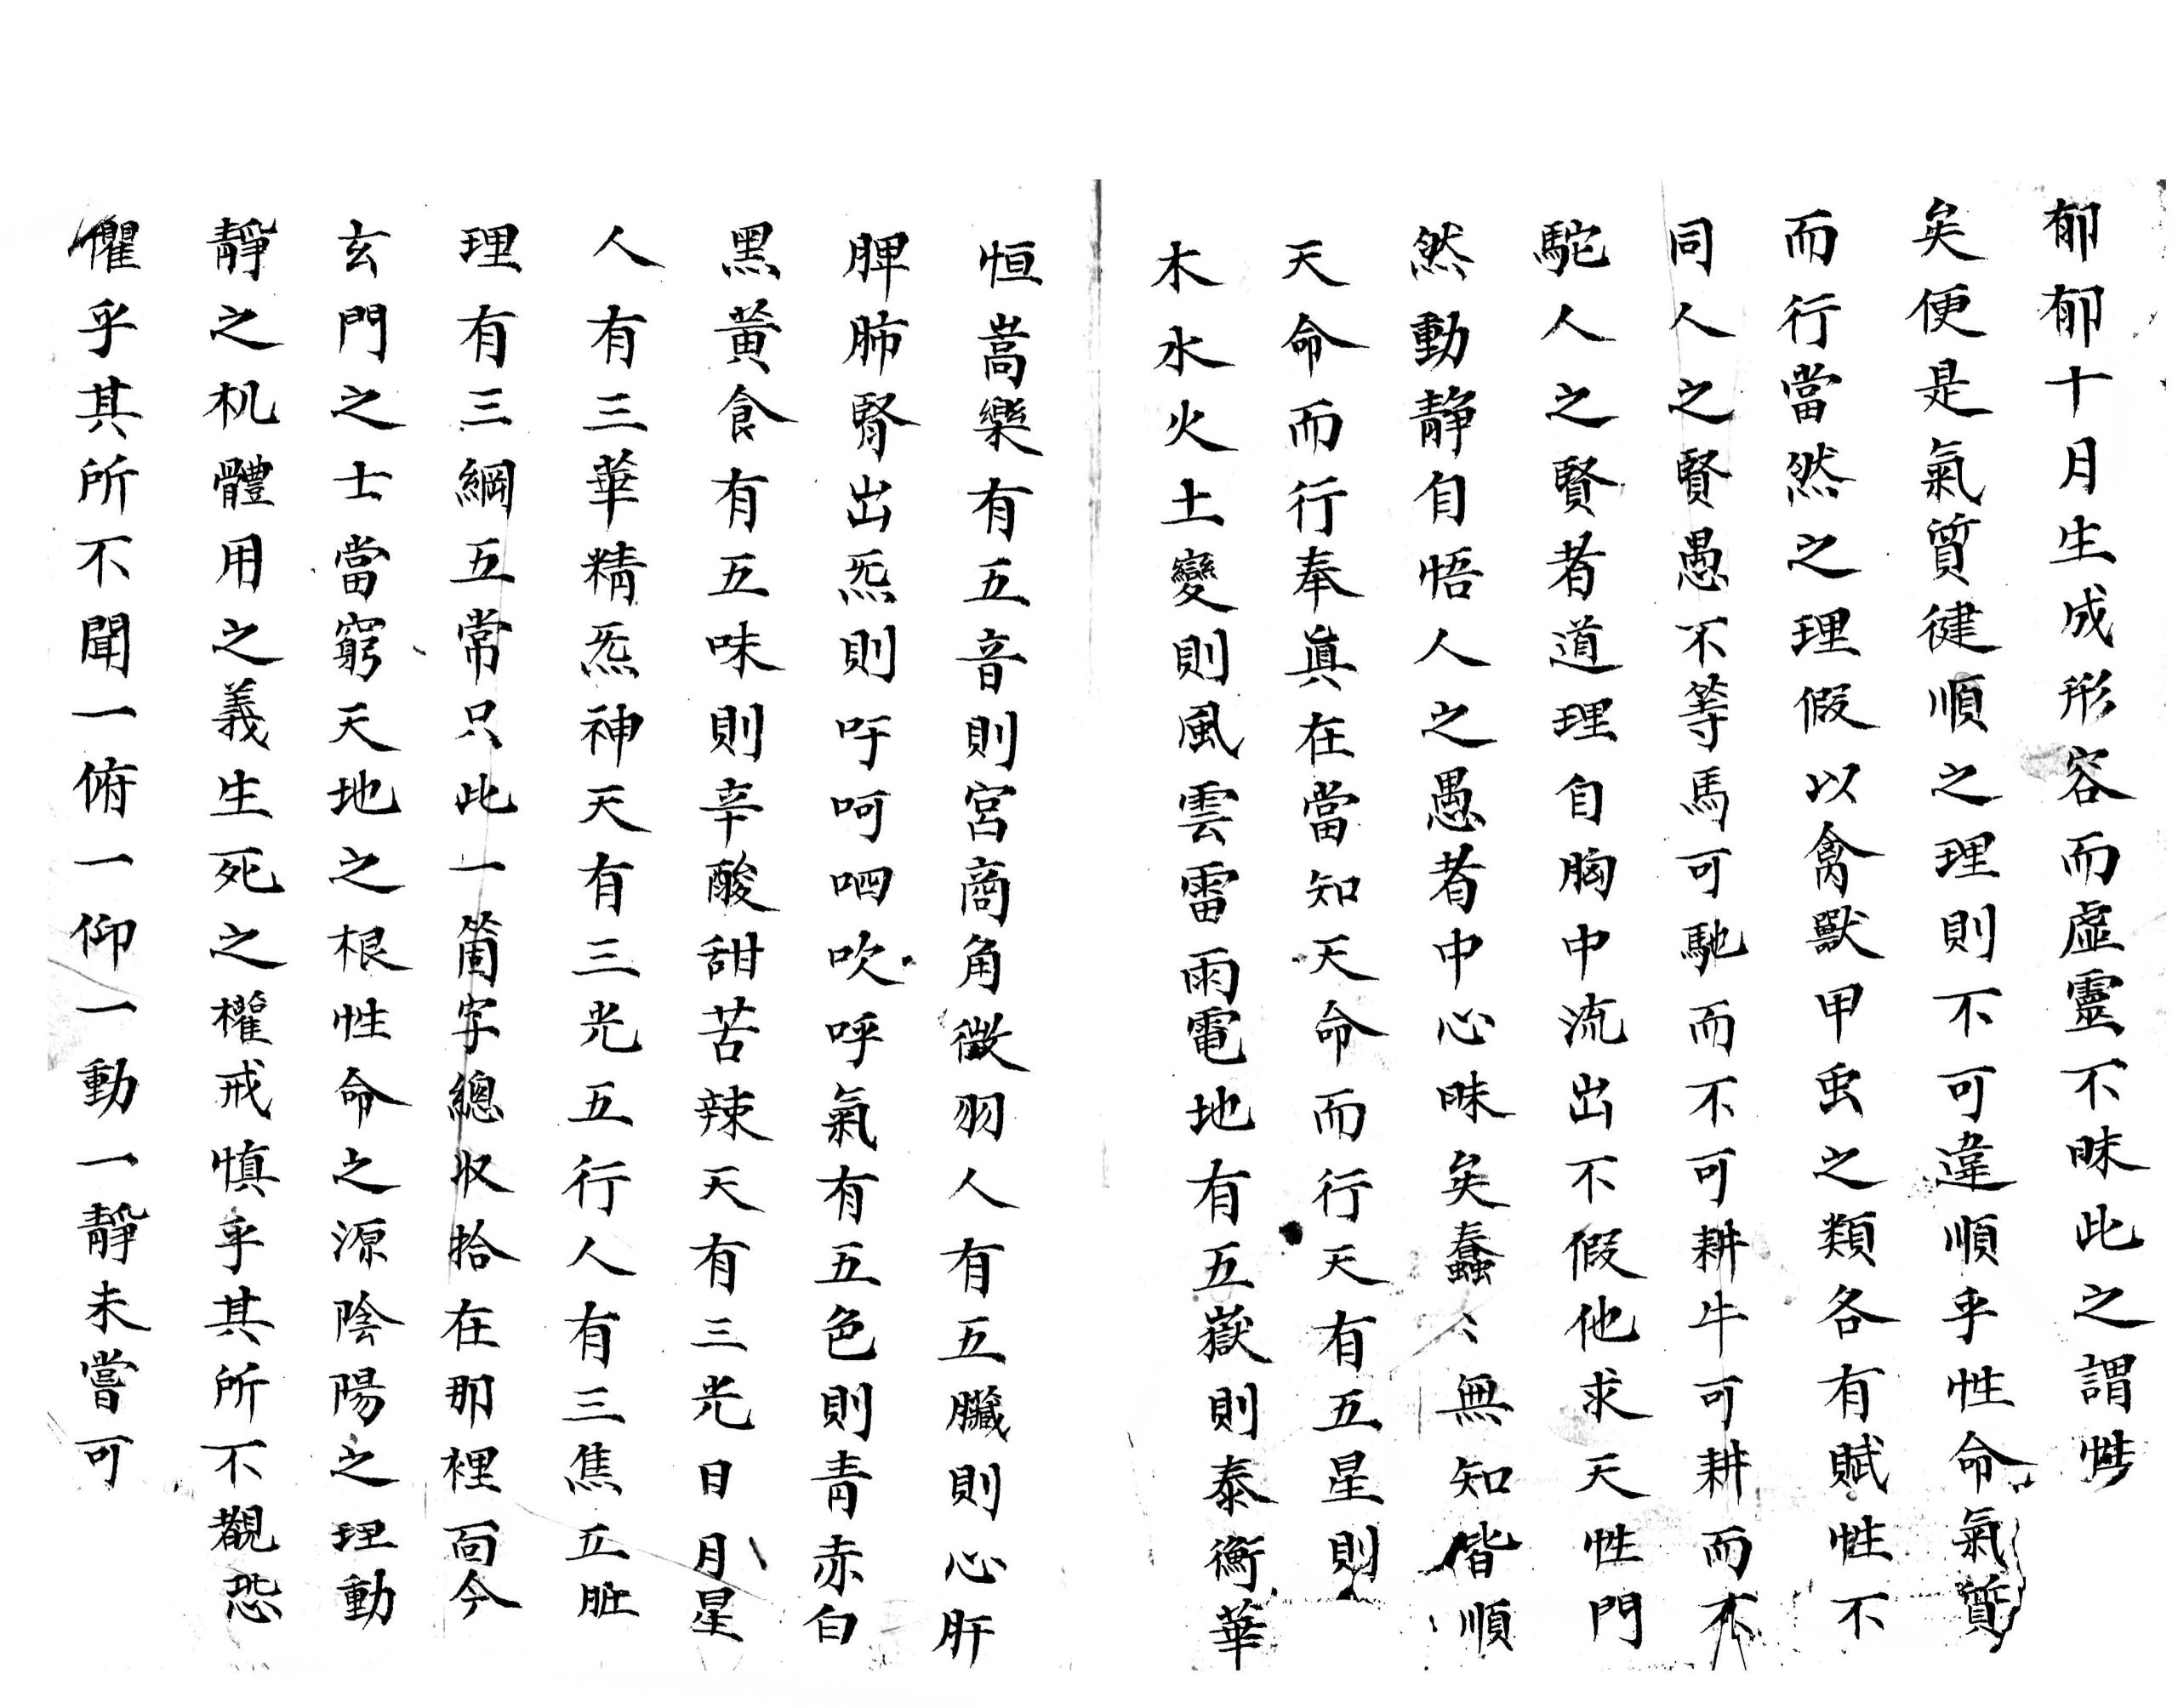 郁郁十月生成形容而虛靈不昧此之謂性
矣便是氣質健順之理則不可違順乎性命氣質
而行當然之理假以禽獸甲虫之類各有賦性不
同人之賢愚不等馬可馳而不可耕牛可耕而不
駝人之賢者道理自胸中流出不假他求天性門
然動静自悟人之愚者中心昧矣蠢〻無知偕順
天命而行奉真在當知天命而行天有五星則
木水火土變則風雲雷雨電地有五嶽則泰衡華
恒嵩樂有五音則宮商角徵羽人有五臟則心肝
脾肺腎出炁則吁呵呬吹呼氣有五色則青赤白
黑黄食有五味則辛酸甜苦辣天有三光日月星
人有三華精炁神天有三光五行人有三焦五脏
理有三綱五常只此一箇字總収拾在那裡面今
玄門之士當窮天地之根性命之源陰陽之理動
靜之机體用之義生死之權戒慎乎其所不觀恐
懼乎其所不聞一俯一仰一動一靜未嘗可